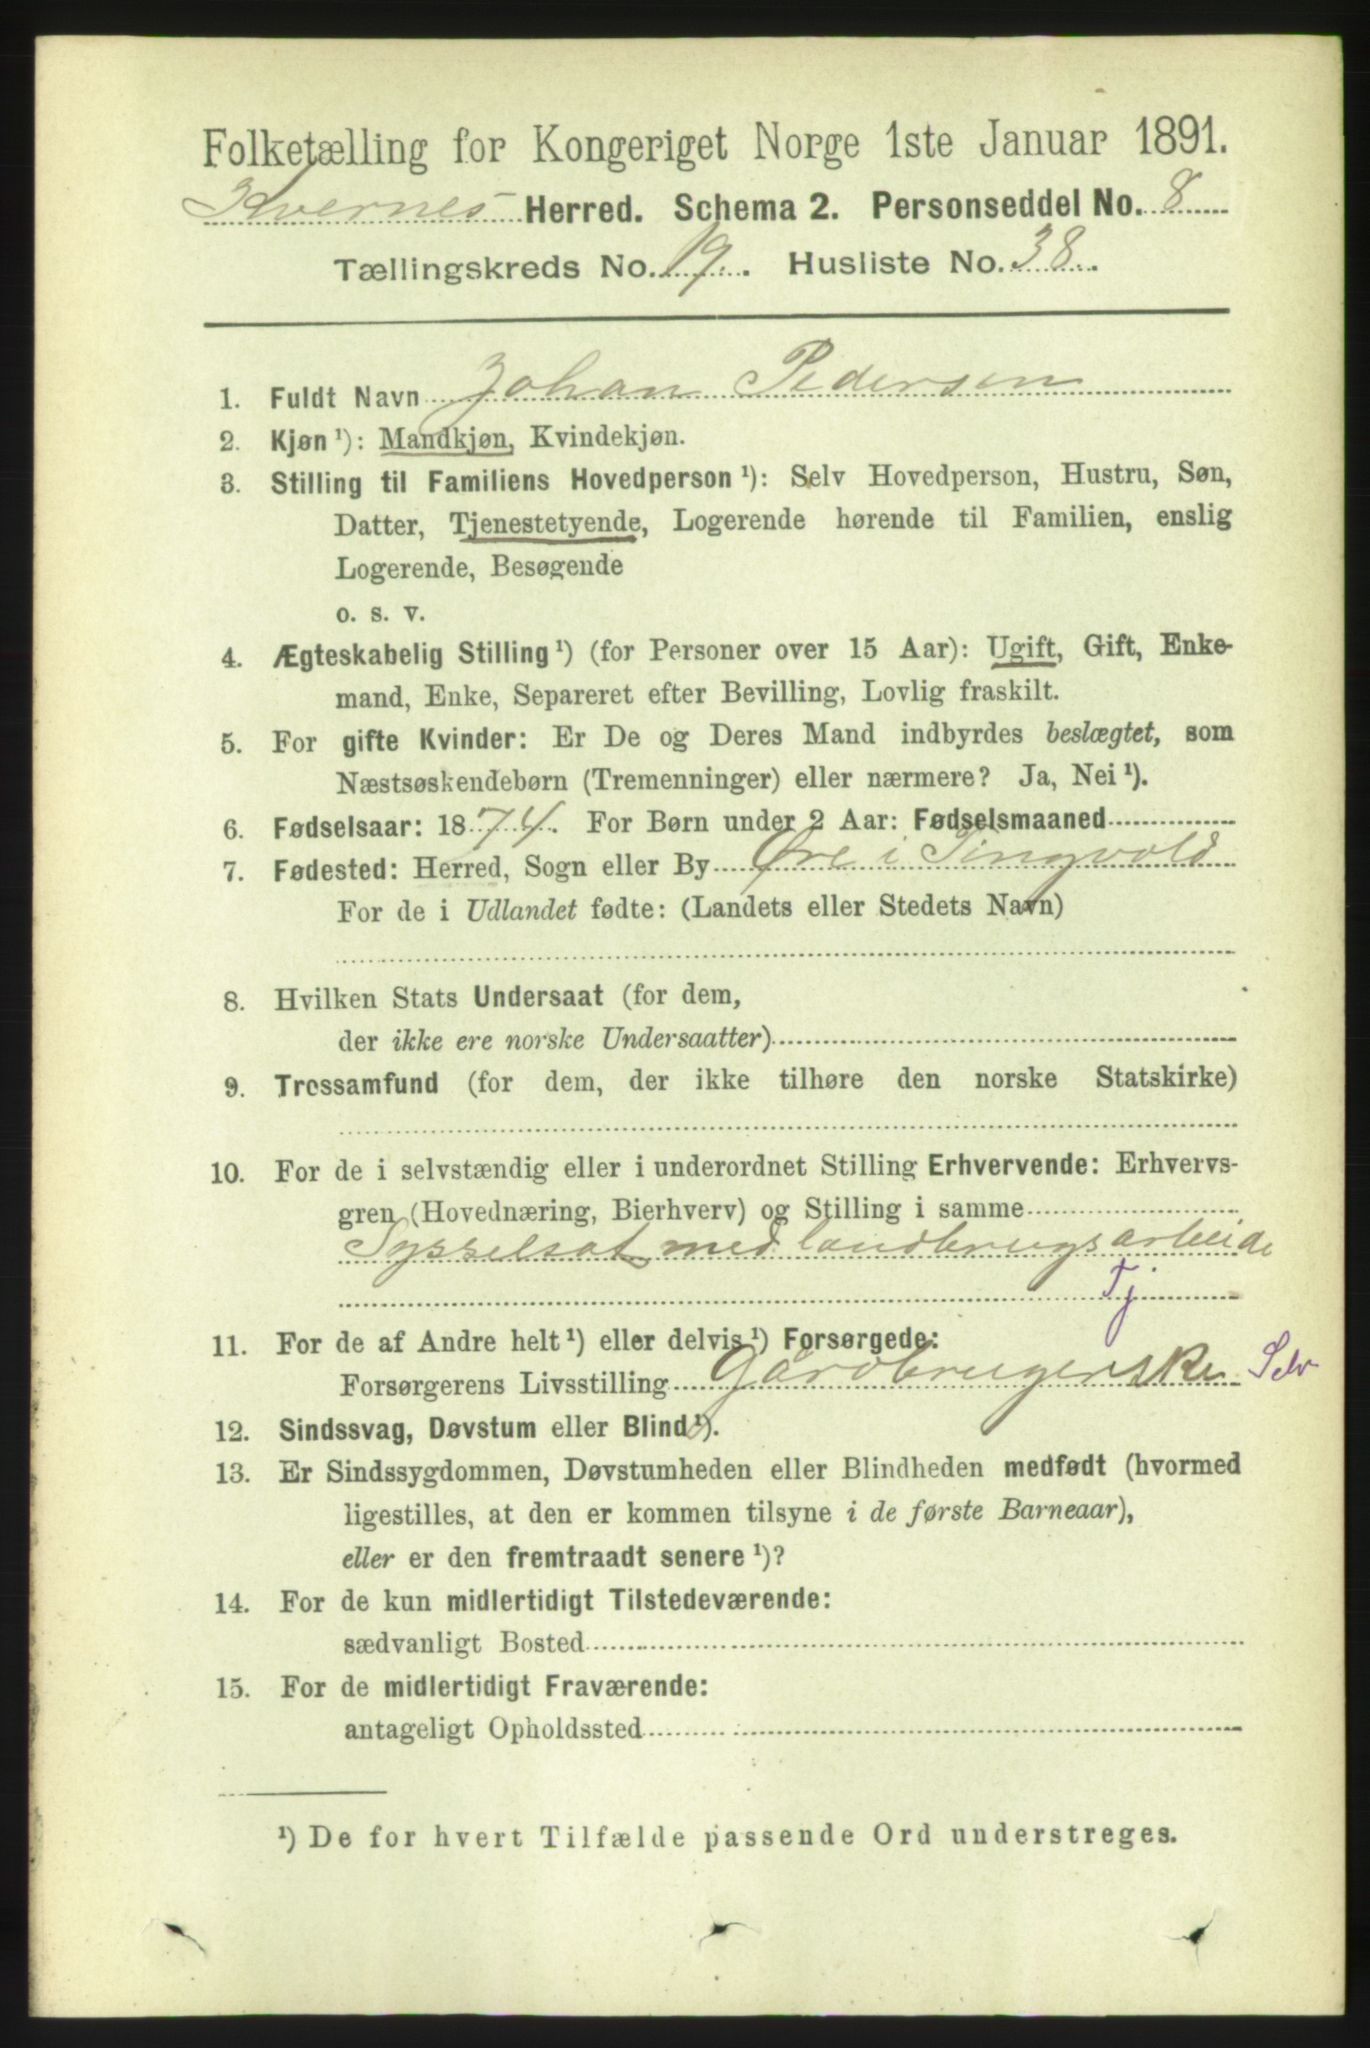 Folketælling for Kongeriget Norge 1ste Januar 1891.
Kvernes Herred. Schema 2. Personseddel No. 8
Tællingskreds No. 19. Husliste No. 38.
1. Fuldt Navn Johan Pedersen
2. Kjøn ¹): Mandkjøn, Kvindekjøn.
3. Stilling til Familiens Hovedperson ¹): Selv Hovedperson, Hustru, Søn,
Datter, Tjenestetyende, Logerende hørende til Familien, enslig
Logerende, Besøgende
o. s. v.
4. Ægteskabelig Stilling ¹) (for Personer over 15 Aar): Ugift, Gift, Enke-
mand, Enke, Separeret efter Bevilling, Lovlig fraskilt.
5. For gifte Kvinder: Er De og Deres Mand indbyrdes beslægtet, som
Næstsøskendebørn (Tremenninger) eller nærmere? Ja, Nei ¹).
6. Fødselsaar: 1874. For Børn under 2 Aar: Fødselsmaaned
7. Fødested: Herred, Sogn eller By Øre i Tingvold
For de i Udlandet fødte: (Landets eller Stedets Navn)
8. Hvilken Stats Undersaat (for dem,
der ikke ere norske Undersaatter)
9. Trossamfund (for dem, der ikke tilhøre den norske Statskirke)
10. For de i selvstændig eller i underordnet Stilling Erhvervende: Erhvervs-
gren (Hovednæring, Bierhverv) og Stilling i samme
Sysselsat med landbrugsarbeide
Tj
11. For de af Andre helt ¹) eller delvis ¹) Forsørgede:
Forsørgerens Livsstilling Gårdbrugerske Selv
12. Sindssvag, Døvstum eller Blind ¹).
13. Er Sindssygdommen, Døvstumheden eller Blindheden medfødt (hvormed
ligestilles, at den er kommen tilsyne i de første Barneaar),
eller er den fremtraadt senere ¹)?
14. For de kun midlertidigt Tilstedeværende:
sædvanligt Bosted
15. For de midlertidigt Fraværende:
antageligt Opholdssted
¹) De for hvert Tilfælde passende Ord understreges.